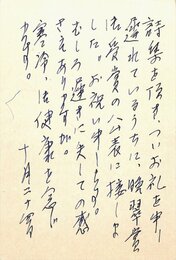 詩集を頂き、ついお礼を申し
遅れているうちに、晩翠賞
御受賞の公表に接しま
した。お祝い申します。
むしろ遅きに失しての感
さえありますが。
寒冷、御健康を念じ
十月二十